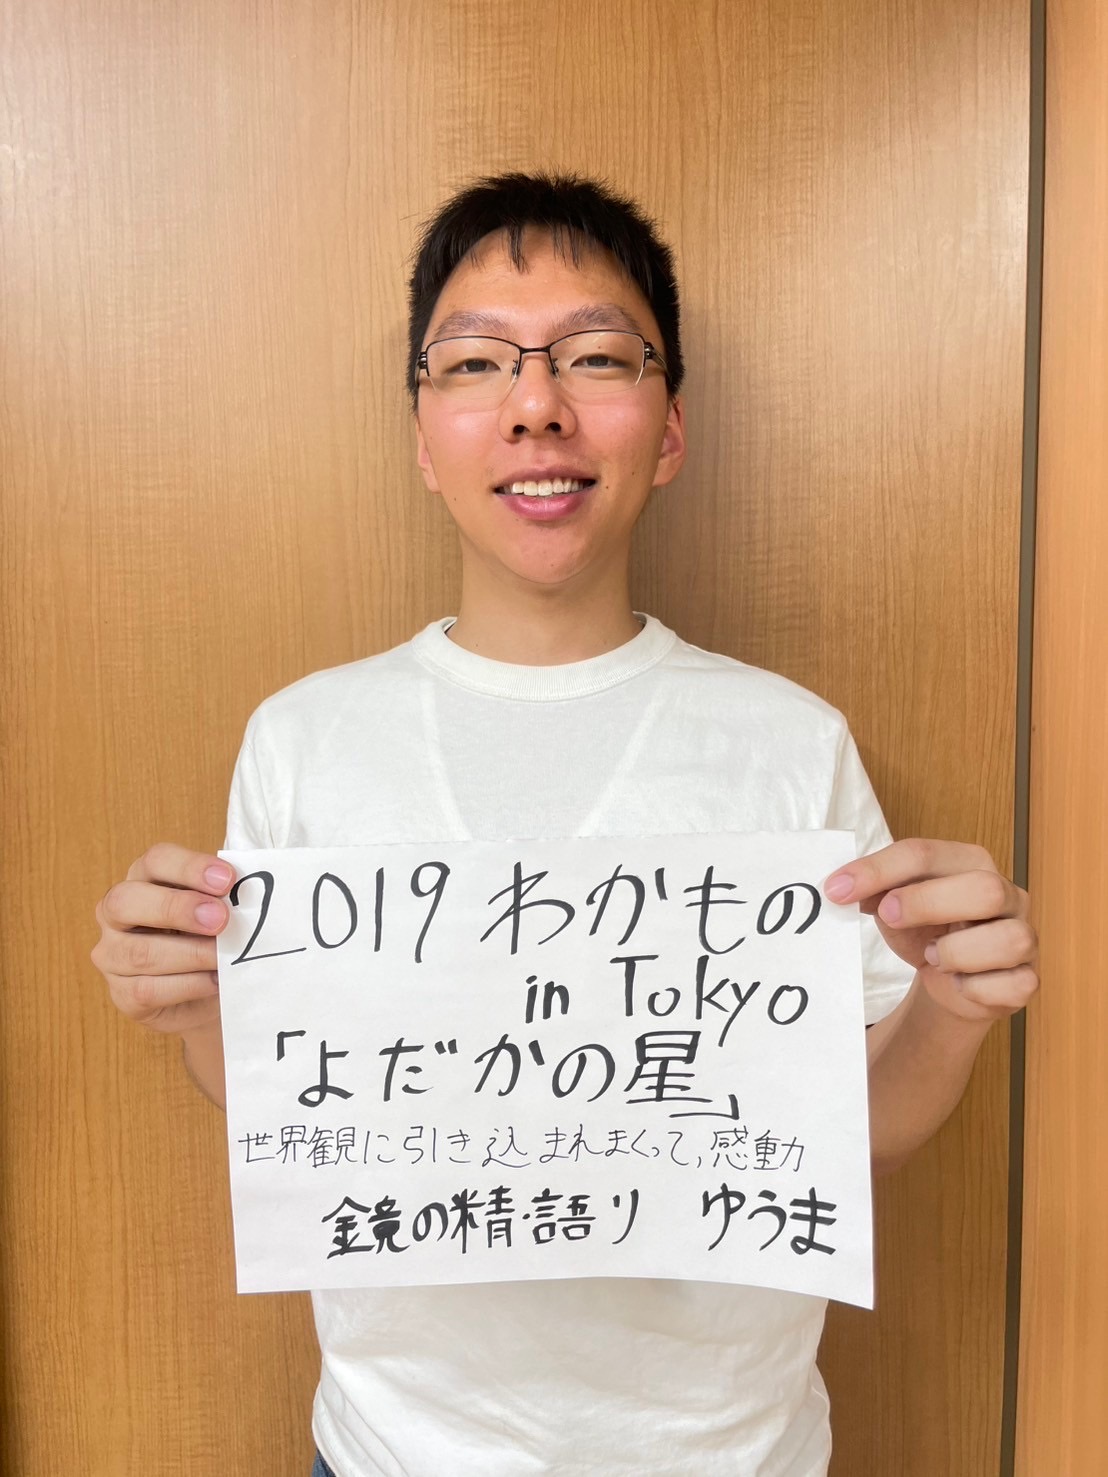 2019 わかもの
in Tokyo
「よだかの星」
世界観に引き込まれまくって,感動
鏡の精・語り ゆうま